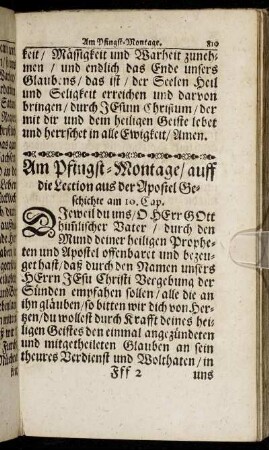 Am Pfingst-Montage. 819
keit / Mässigkeit und Warheit zuneh-
men / und endlich das Ende unsers
Glaubens / das ist / der Seelen Heil
und Seligkeit erreichen und darvon
bringen / durch JEsum Christum / der
mit dir und dem heiligen Geiste lebet
und herrschet in alle Ewigkeit / Amen.
Am Pfingst-Montage / auff
die Lection aus der Apostel Ge-
schichte am 10. Cap.
DJeweil du uns / O HErr GOtt
himlischer Vater / durch den
Mund deiner heiligen Prophe-
ten und Apostel offenbaret und bezeu-
get hast / daß durch den Namen unsers
HErrn JEsu Christi Vergebung der
Sünden empfahen sollen / alle die an
ihn gläuben / so bitten wir dich von Her-
tzen / du wollest durch Krafft deines hei-
ligen Geistes den einmal angezündeten
und mitgetheileten Glauben an sein
theures Verdienst und Wolthaten / in
Fff 2 uns